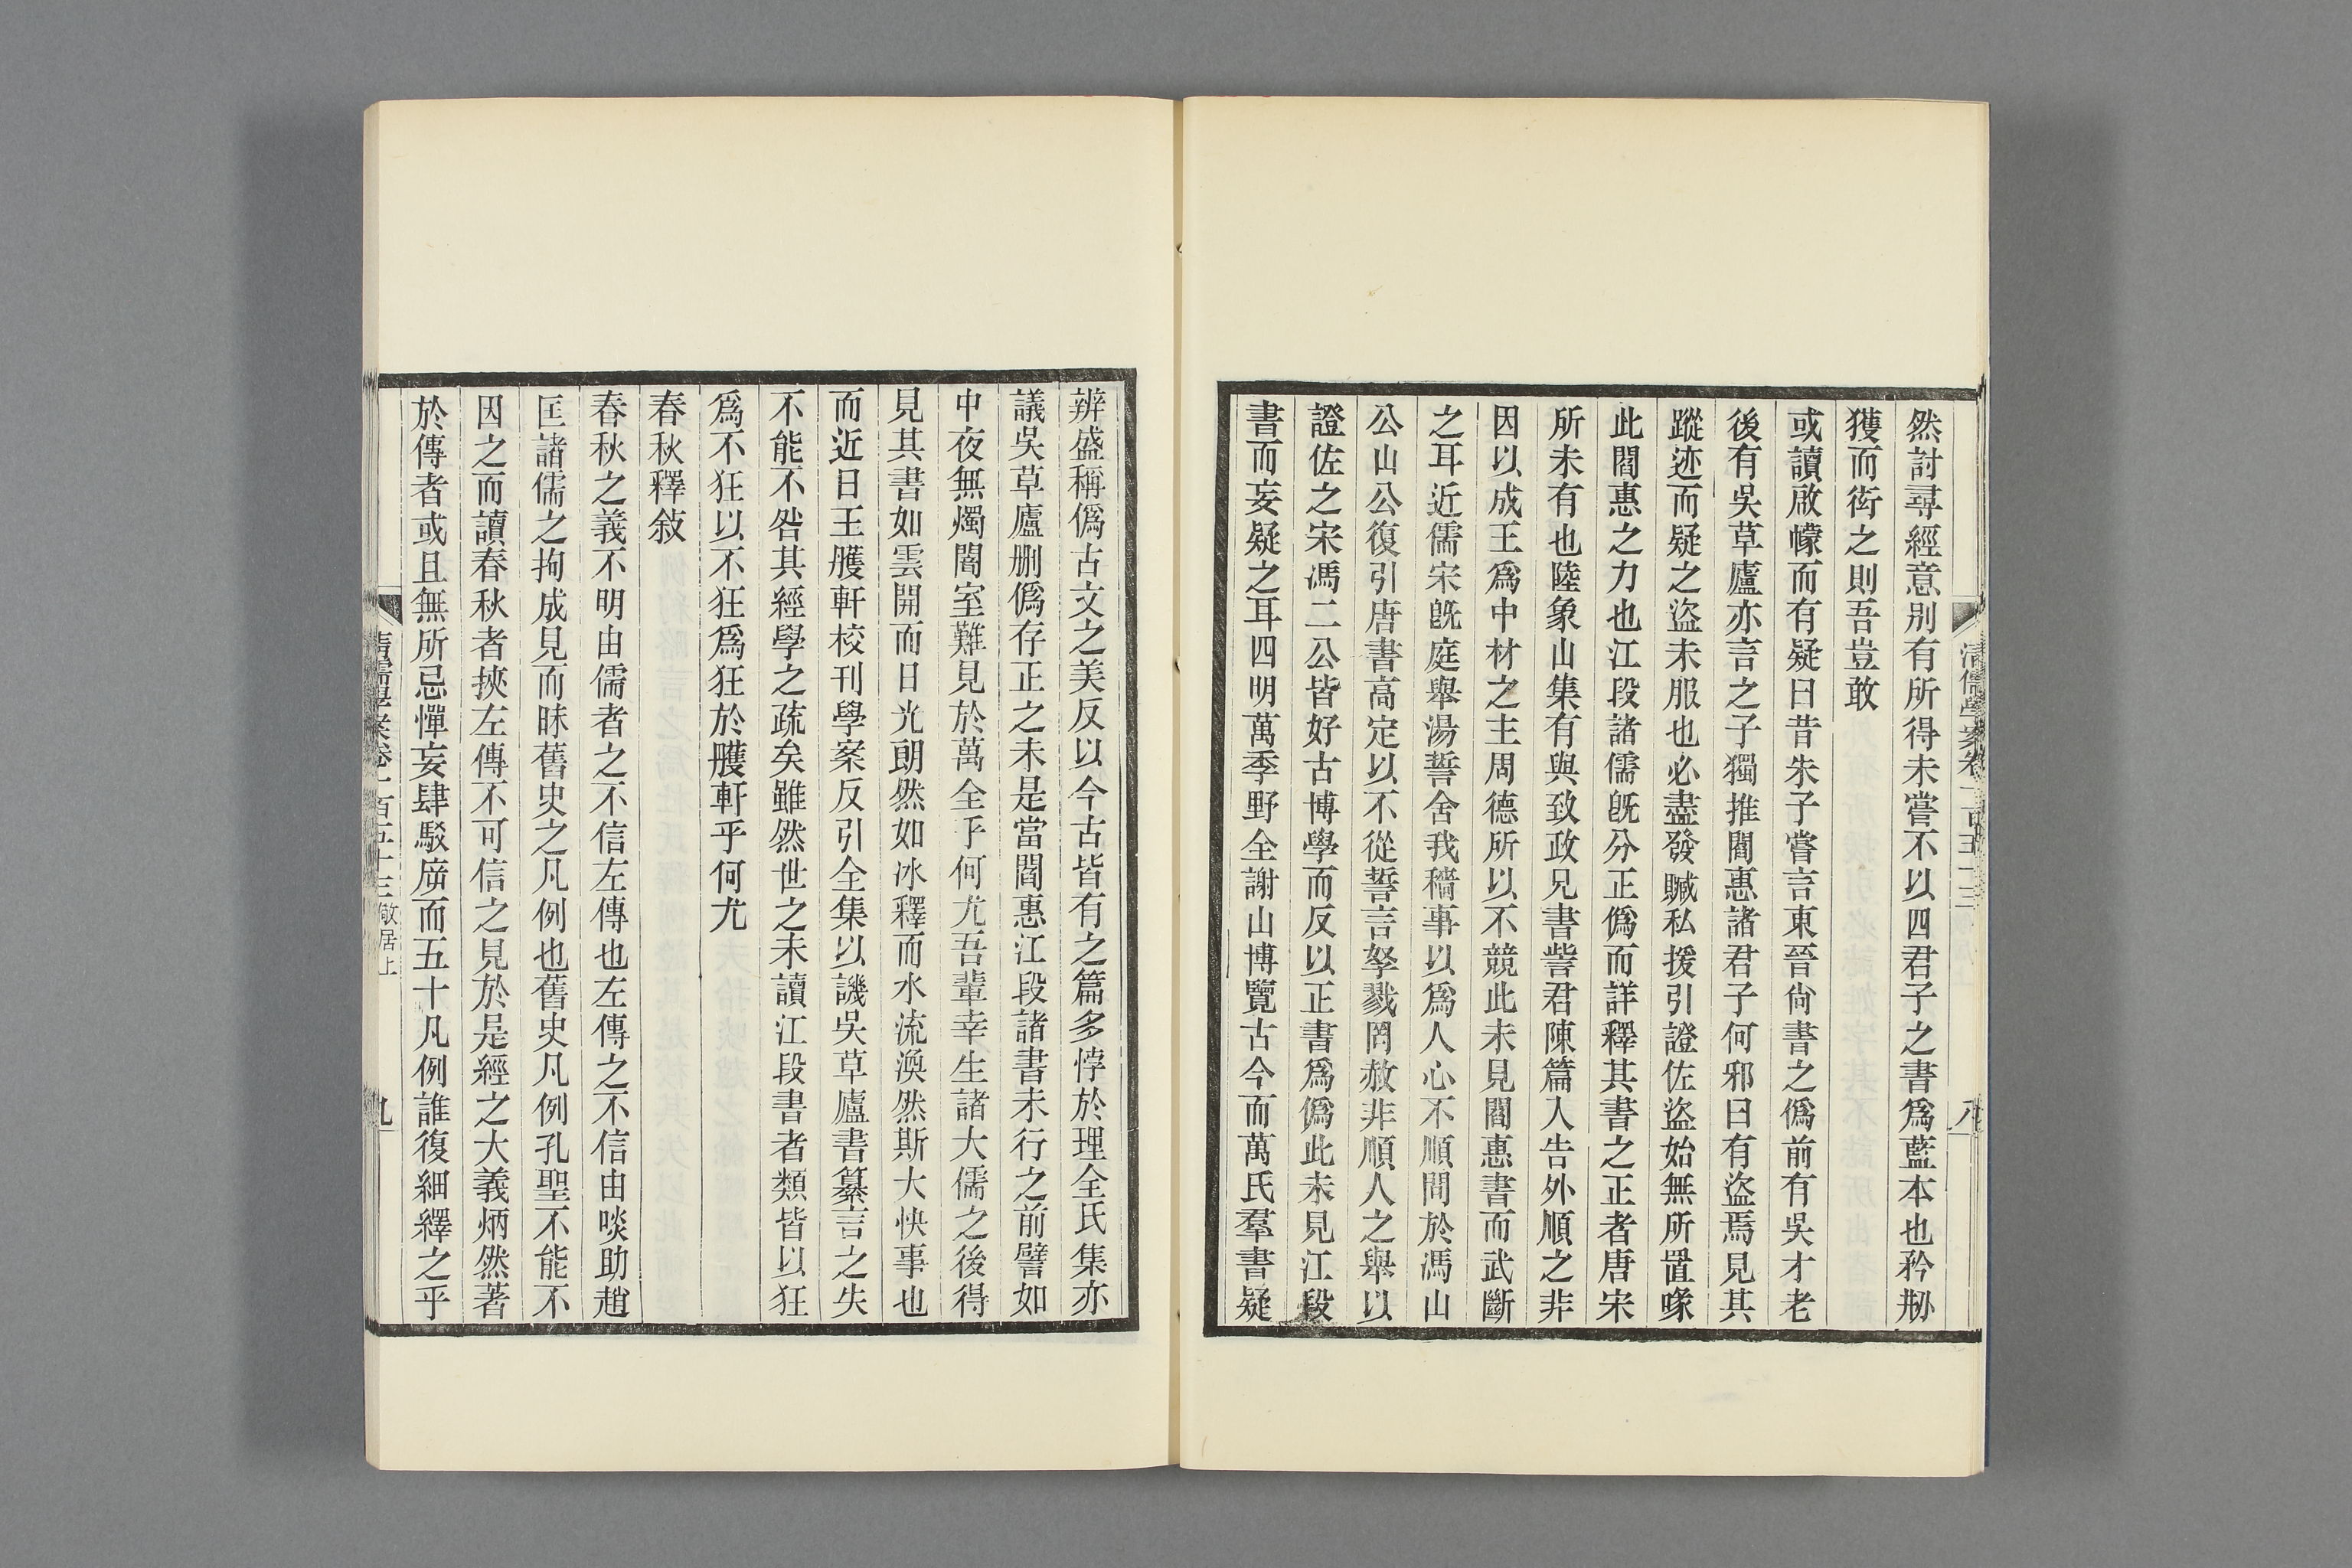 清儒學案卷一百五十三
八
然討尋經意别有所得未嘗不以四君子之書爲藍本也矜刱
獲而衒之則吾豈敢
或讀啟幪而有疑曰昔朱子嘗言東晉尙書之僞前有吳才老
後有吳草廬亦言之子獨推閻惠諸君子何邪曰有盜焉見其
蹤迹而疑之盜未服也必盡發贓私援引證佐盜始無所置喙
此閻惠之力也江段諸儒旣分正僞而詳釋其書之正者唐宋
所未有也陸象山集有與致政兄書訾君陳篇入告外順之非
因以成王爲中材之主周德所以不競此未見閻惠書而武斷
之耳近儒宋旣庭舉湯誓舍我穡事以爲人心不順問於馮山
公山公復引唐書高定以不從誓言孥戮罔赦非順人之舉以
證佐之宋馮二公皆好古博學而反以正書爲僞此未見江段
書而妄疑之耳四明萬季野全謝山博覽古今而萬氏羣書疑
辨盛稱僞古文之美反以今古皆有之篇多悖於理全氏集亦
議吳草廬删僞存正之未是當閻惠江段諸書未行之前譬如
中夜無燭闇室難見於萬全乎何尤吾輩幸生諸大儒之後得
見其書如雲開而日光朗然如冰釋而水流渙然斯大快事也
而近日王䑾軒校刊學案反引全集以譏吳草廬書纂言之失
不能不咎其經學之疏矣雖然世之未讀江段書者類皆以狂
爲不狂以不狂爲狂於䑾軒乎何尤
春秋釋敍
春秋之義不明由儒者之不信左傳也左傳之不信由啖助趙
匡諸儒之拘成見而昧舊史之凡例也舊史凡例孔聖不能不
因之而讀春秋者挾左傳不可信之見於是經之大義炳然著
於傳者或且無所忌憚妄肆駁㡿而五十凡例誰復細繹之乎
清儒學案卷一百五十三 儆居上
九